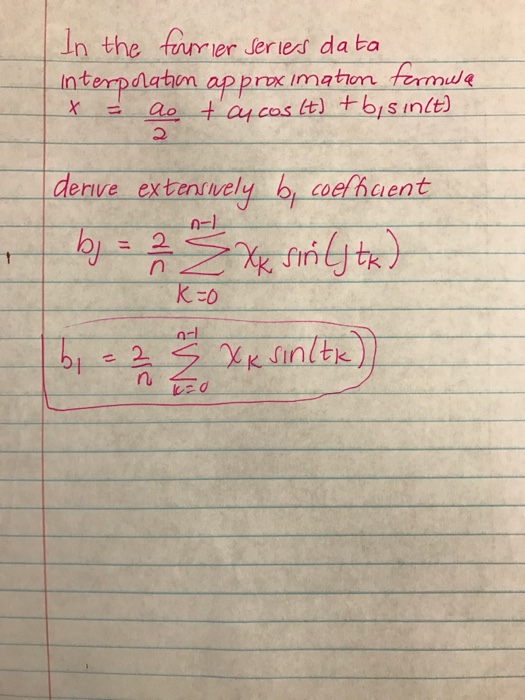 In the fourier series data
interpolation approximation formula
x = a₀/2 + a₁cos(t) + b₁sin(t)
derive extensively b₁ coefficient
bⱼ = 2/n Σ_{k=0}^{n-1} x_k sin(j t_k)
b₁ = 2/n Σ_{k=0}^{n-1} x_k sin(t_k)